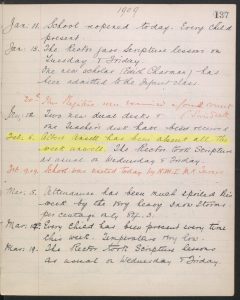 1909
137
Jan. 11. School reopened today. Every Child
present.
Jan. 15. The Rector gave Scripture lessons on
Tuesday & Friday.
One new scholar (Enid Charman) has
been admitted to the Infant class.
20th The Registers were examined & found correct
Two new dual desks &
one teacher's desk have been received
Feb. 5. Miss has been absent all the
week unwell. The Rector took Scripture
as usual on Wednesday & Friday.
School was visited today by H.M.I.
Mar. 5. Attendance has been much spoiled this
week by the very heavy snow storms
percentage only
Mar. 12. Every Child has been present every time
this week. Temperature very low.
Mar. 19. The Rector took Scripture lessons
as usual on Wednesday & Friday